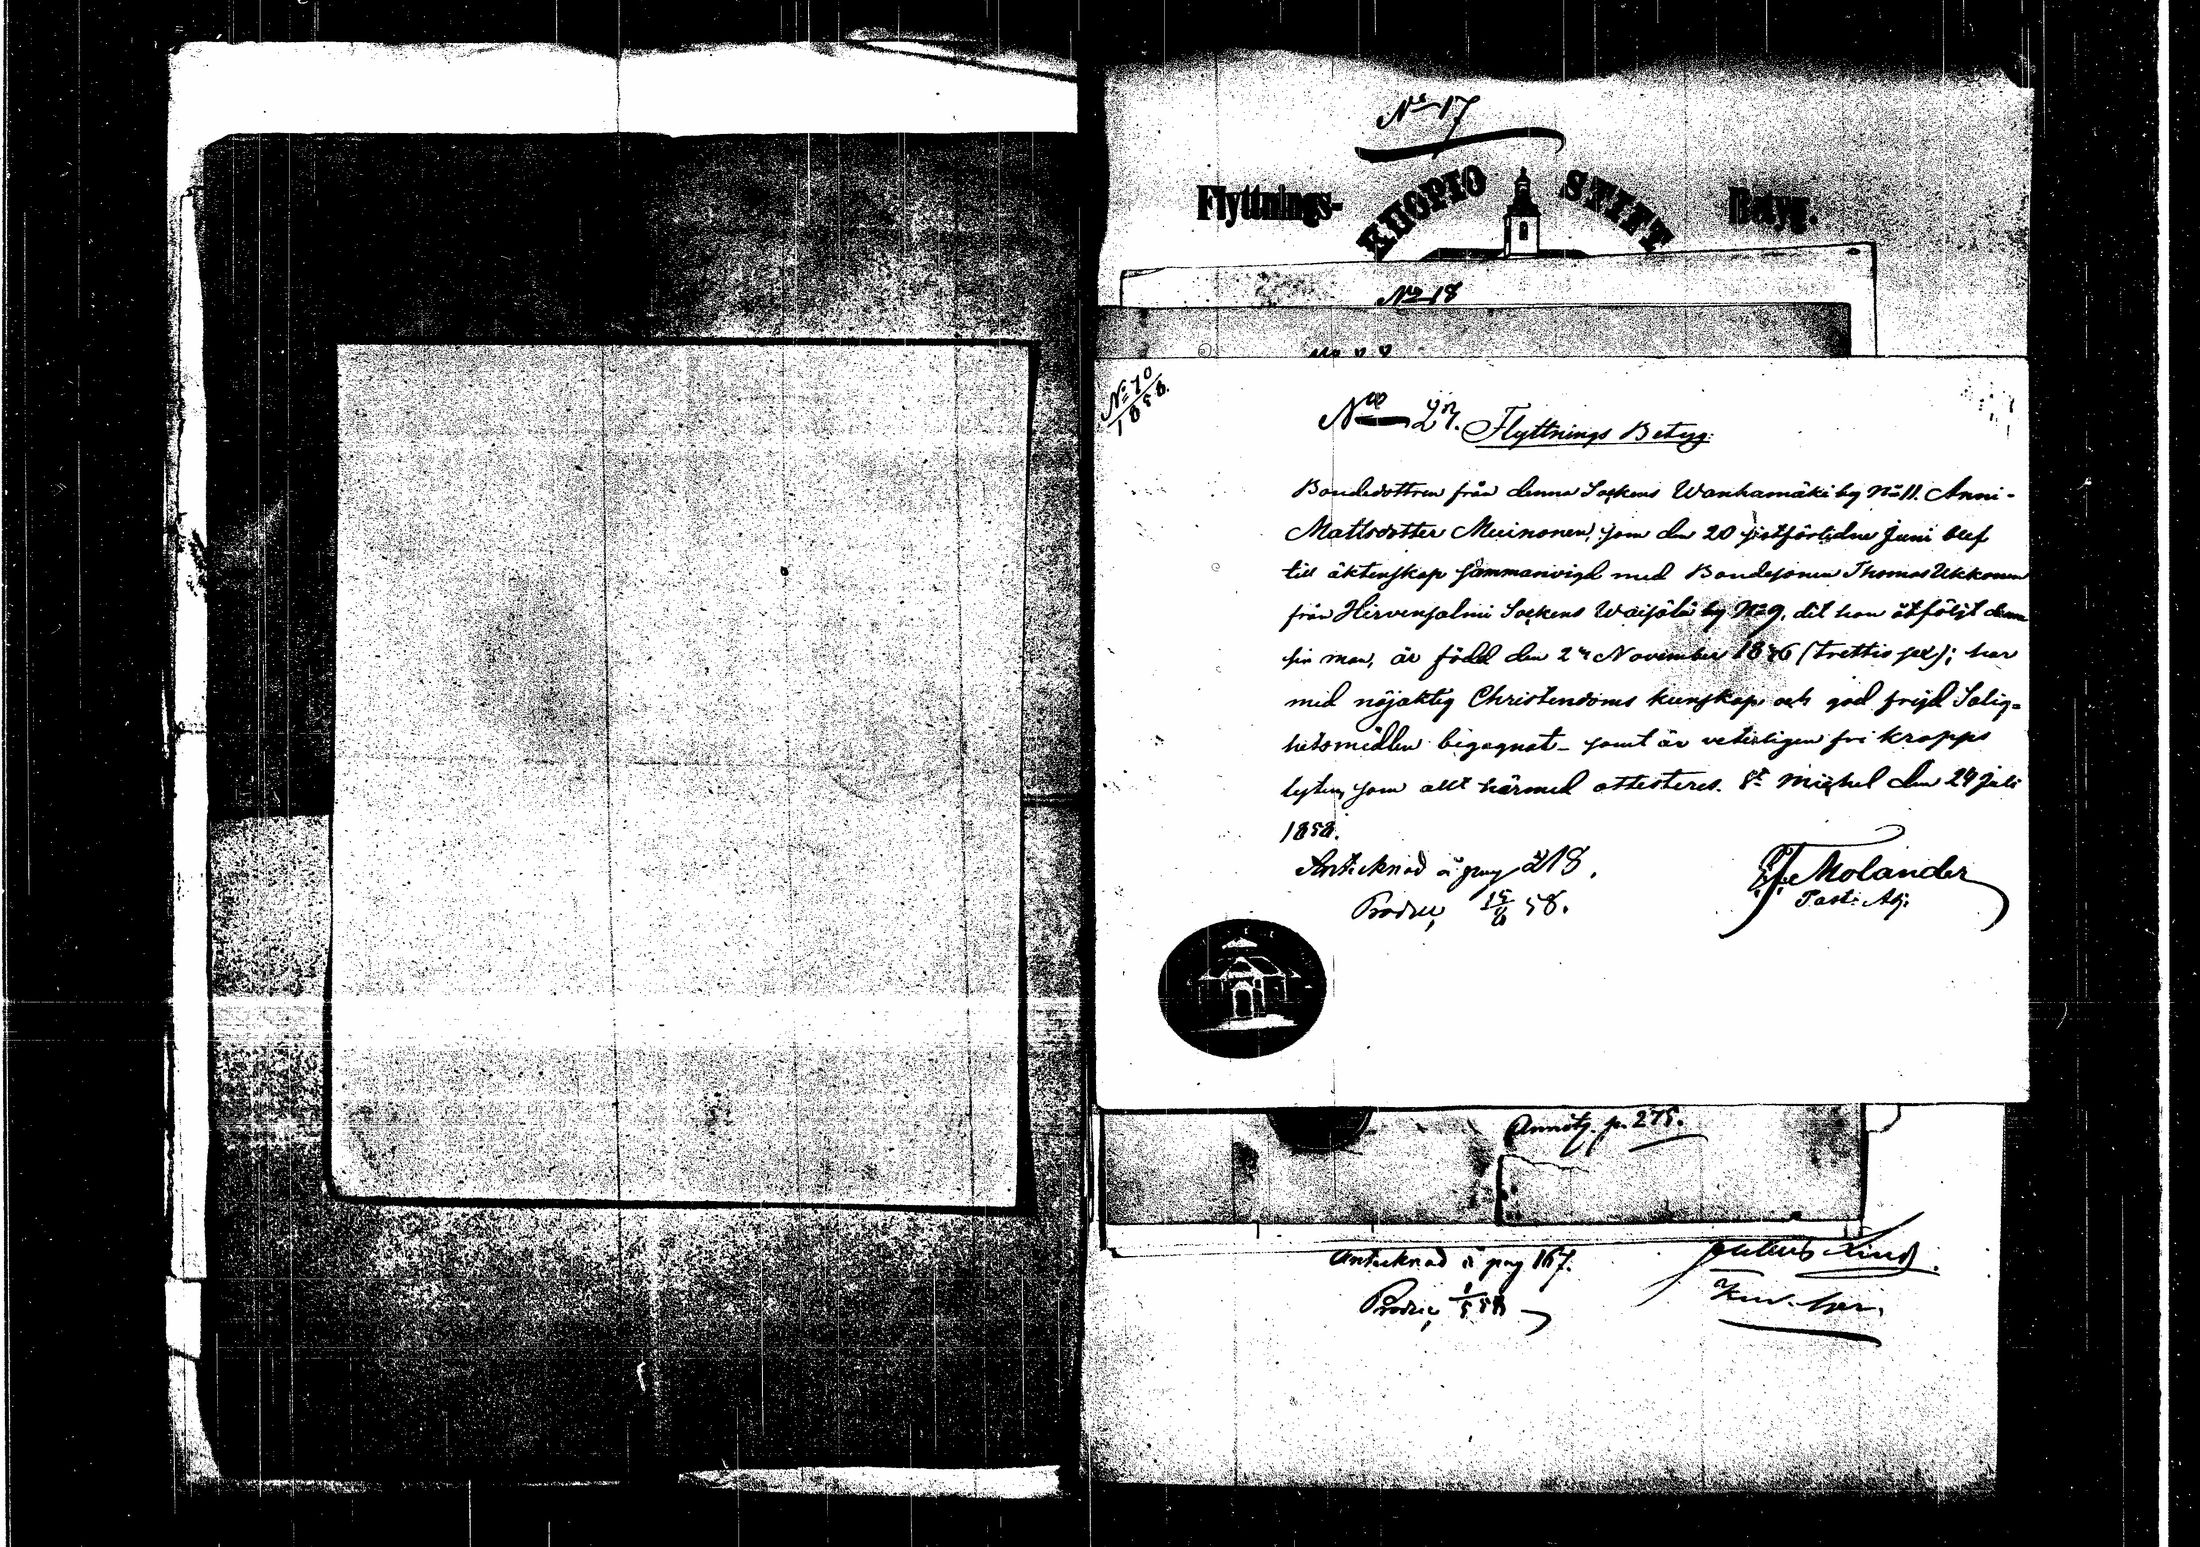 No 17
Flyttnings- KUOPIO STIFT Betyg.
No 18
No 70
1858.
No 27. Flyttnings Betyg:
Bondedottren från denna Sockens Wanhamäki by No 11. Anni-
Mattsdotter Muinonen, som den 20 sistförlidne Juni blef
till äktenskap sammanvigd med Bondesonen Thomas Ukkonen
från Hirvensalmi Sockens Waisälä by No 9, dit hon åtföljt denna
sin man, är född den 2 November 18 (trettio sex); har
med nöjaktig Christendoms kunskap och god frejd Salig-
hetsmedlen begagnat samt är veterligen fri kropps
lyten, som allt härmed attesteras. St Michel den 29 Juli
1858.
Antecknad å pag 218.
Molander
Past. Adj.
Prodr. 15/8 58.
Annot. p. 275.
Antecknad å pag 167.
Prodr. 1/5 58